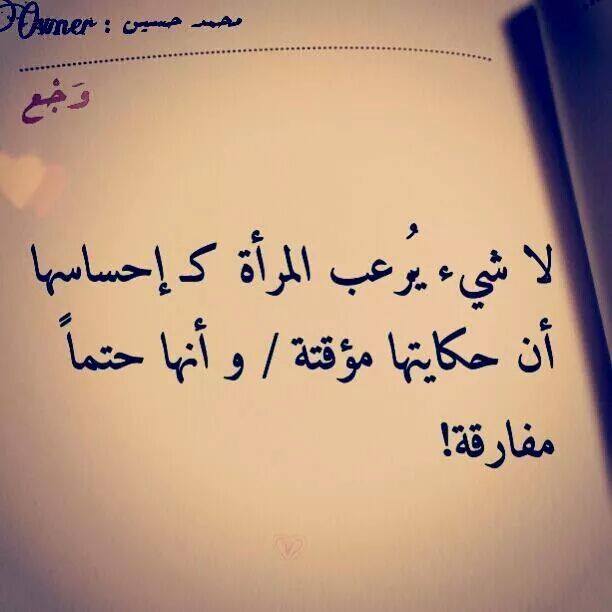 Owner : محمد حسين
وَجْع
لا شيء يُرعب المرأة كـ إحساسها
أن حكايتها مؤقتة / و أنها حتماً
مفارقة!